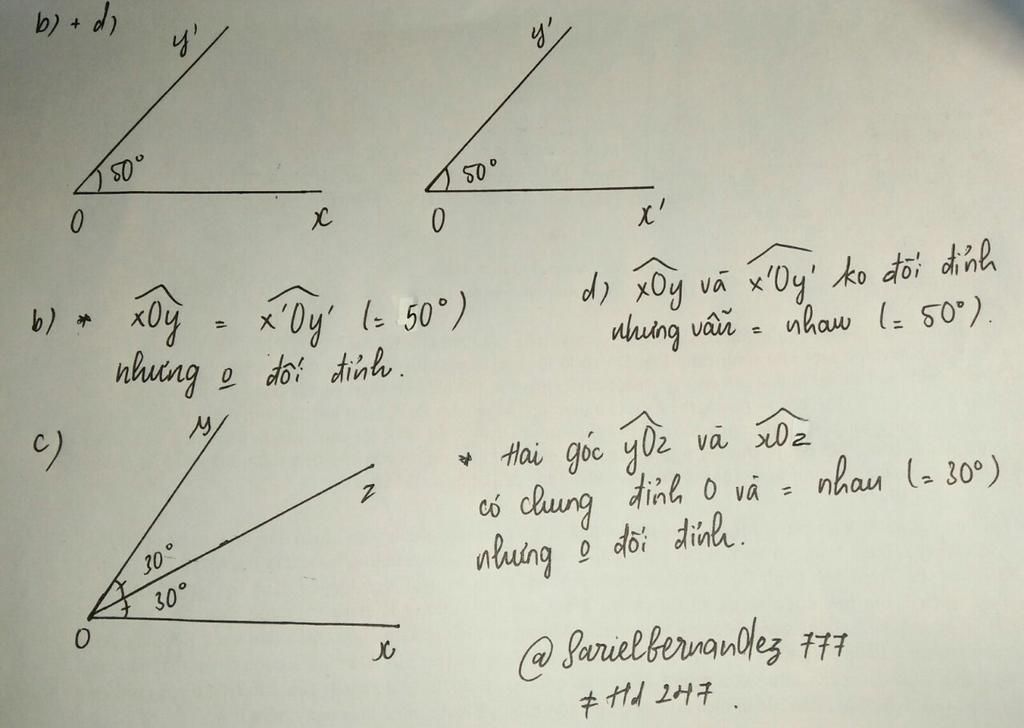 b) + d)
y'
50°
O
x
y'
50°
O
x'
b) * xOy = x'Oy' (= 50°)
nhưng o đối đỉnh.
d) xOy và x'Oy' ko đối đỉnh
nhưng vẫn = nhau (= 50°).
c)
y
z
30°
30°
O
x
* Hai góc yOz và xOz
có chung đỉnh O và = nhau (= 30°)
nhưng o đối đỉnh.
@Sarielfernandez 777
≠ Hd 247.